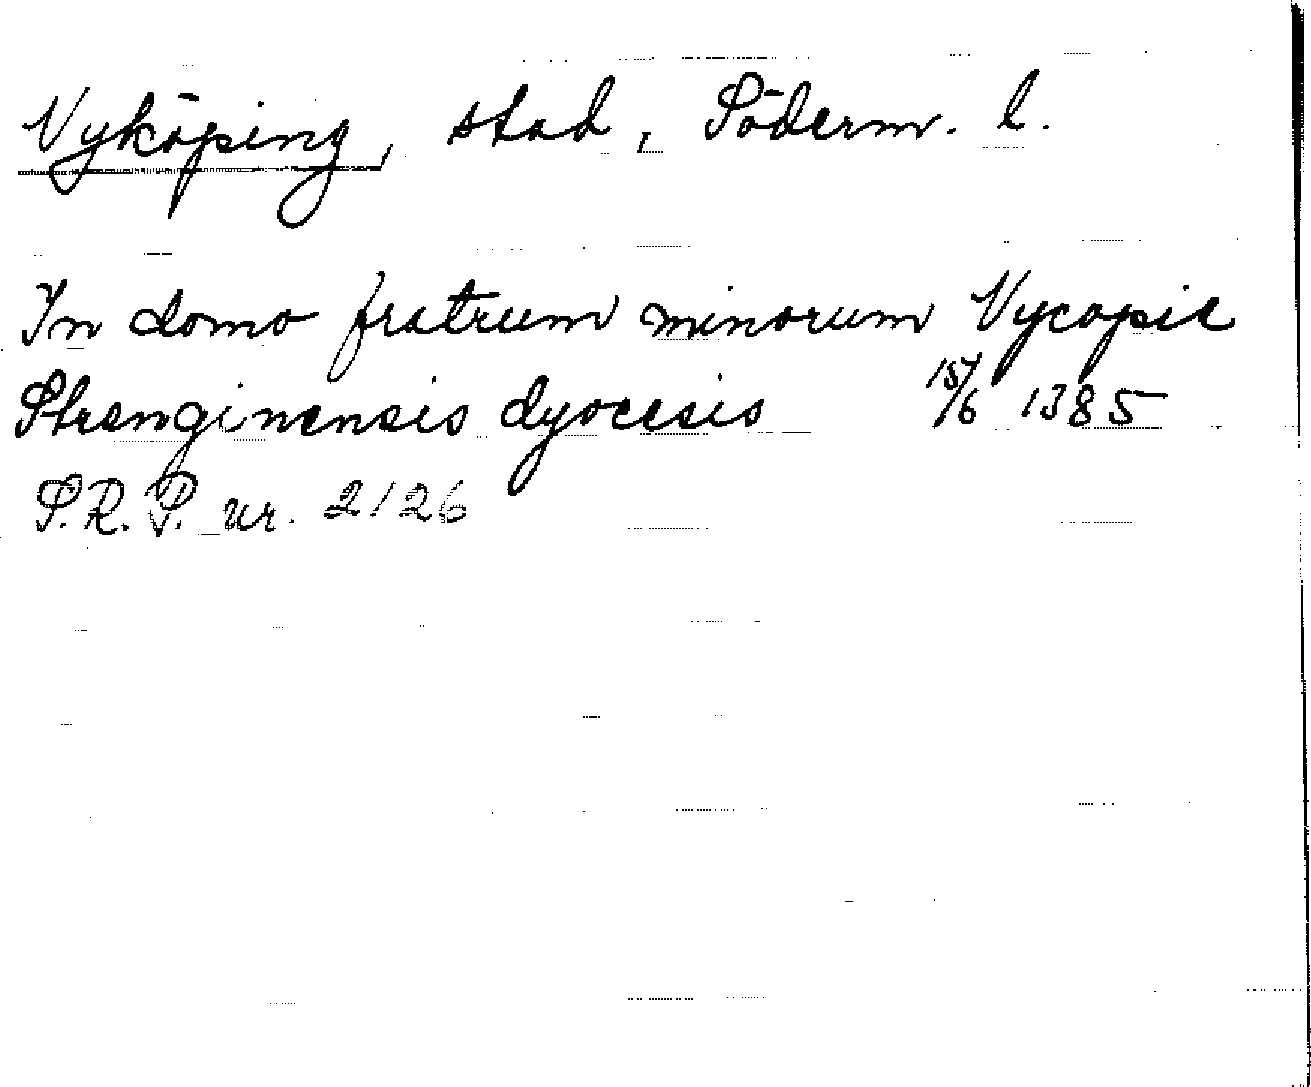 Nyköping, stad, Söderm. l.
In domo fratrum minorum Nycopie
Strenginensis dyocesis 15/6 1385
S.R.P. nr. 2126